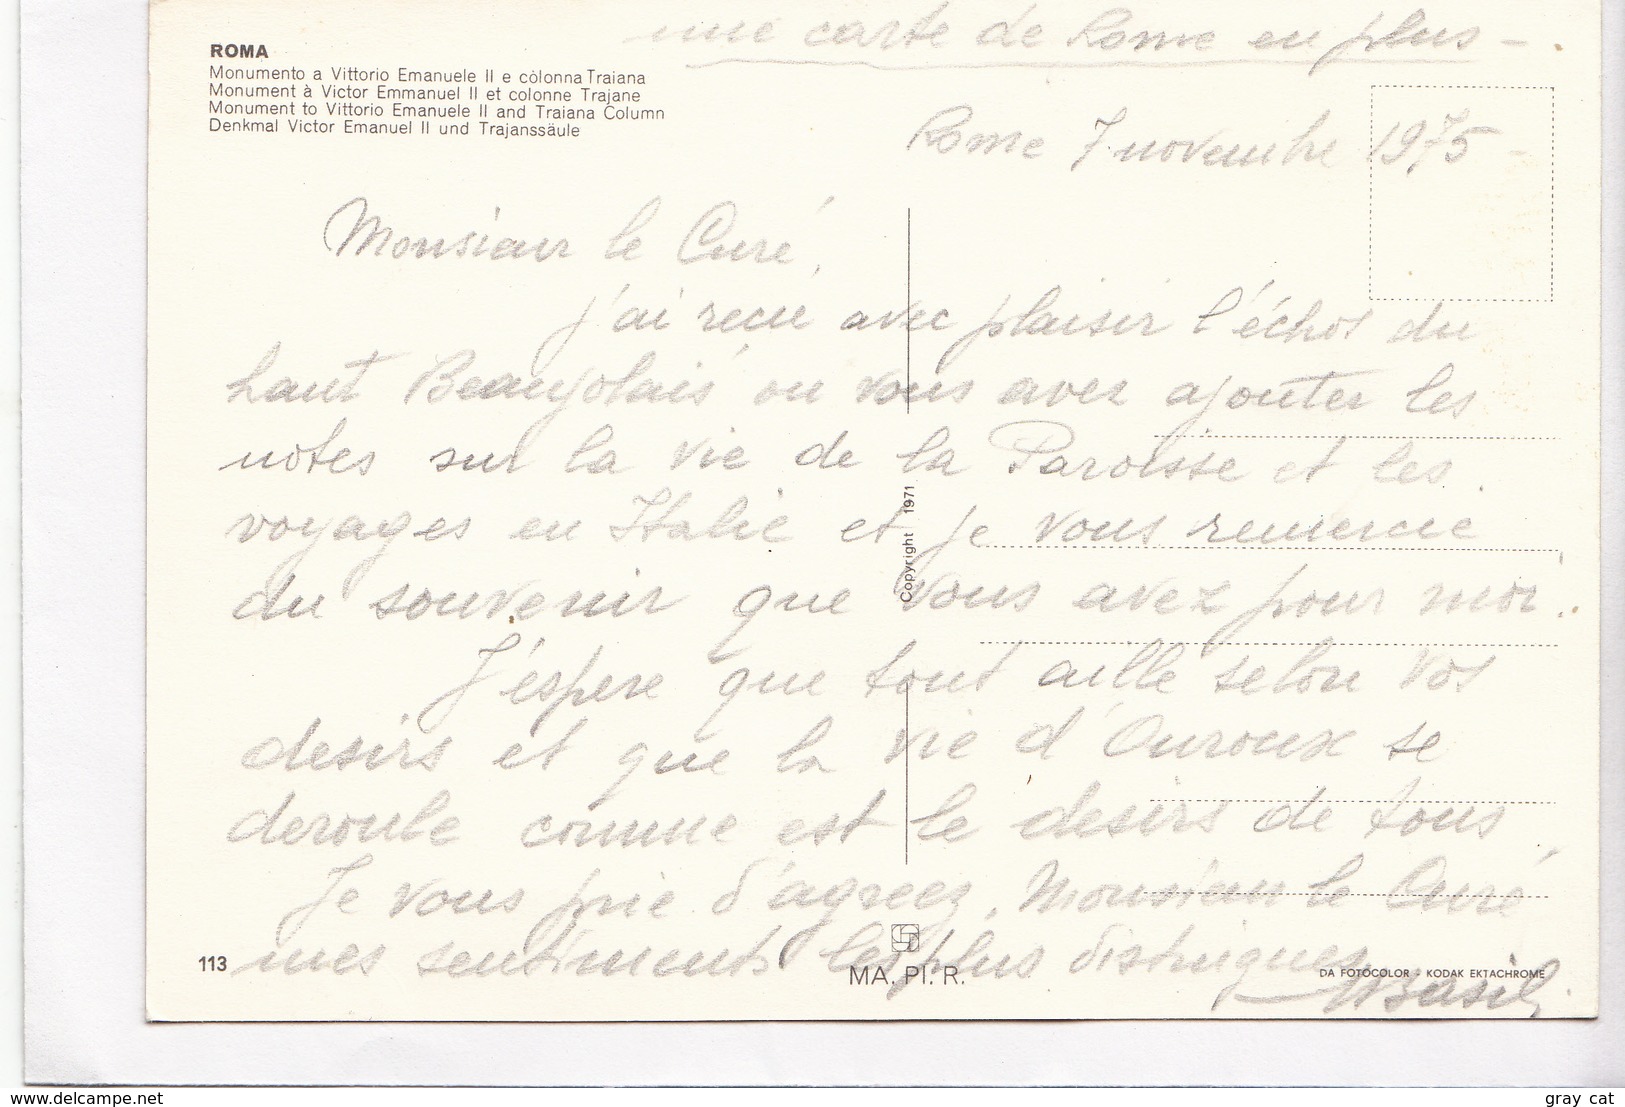 une carte de Rome en plus -.
ROMA
Monumento a Vittorio Emanuele II e còlonna Traiana
Monument à Victor Emmanuel II et colonne Trajane
Monument to Vittorio Emanuele II and Traiana Column
Denkmal Victor Emanuel II und Trajanssäule
Rome 7 novembre 1975
Monsieur le Curé,
j'ai recu avec plaisir l'échos du
haut Beaujolais ou vous avez ajouter les
notes sur la vie de la Paroisse et les
voyages en Italie et je vous remercie
du souvenir que vous avez pour moi.
J'éspere que tout aille selon vos
desirs et que la vie d'Ouroux se
deroule comme est le desirs de tous,
Je vous prie d'agreez, Monsieur le Curé
mes sentiments les plus distingues
Basil
Copyright 1971
113
MA. PI. R.
DA FOTOCOLOR - KODAK EKTACHROME
www.delcampe.net
gray cat